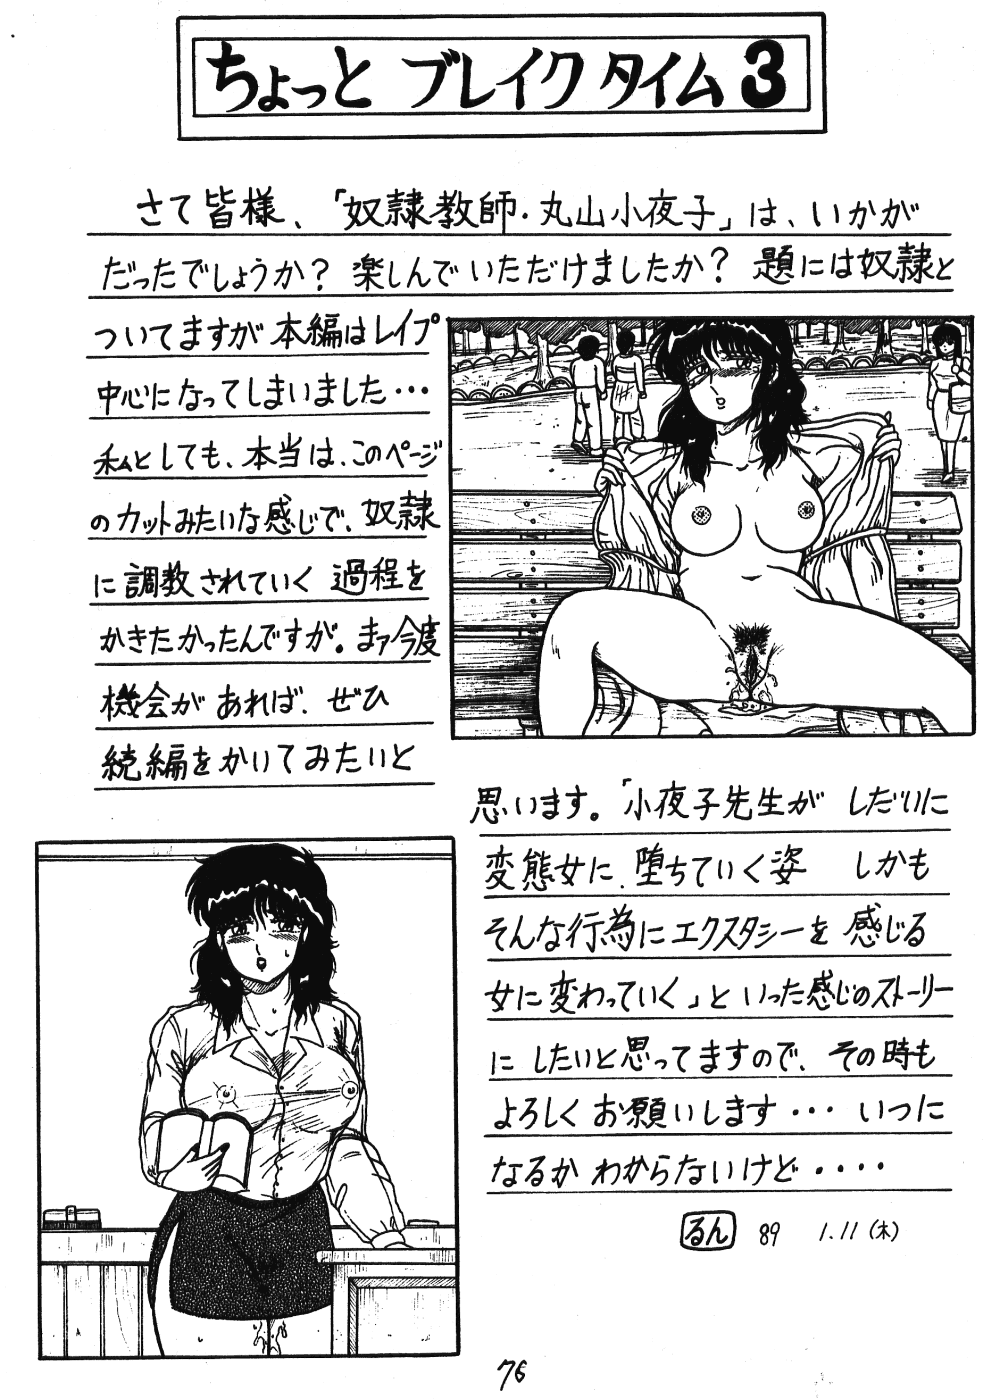 ちょっと ブレイク タイム 3
さて皆様、「奴隷教師・丸山小夜子」は、いかが
だったでしょうか? 楽しんでいただけましたか? 題には奴隷と
ついてますが本編はレイプ
中心になってしまいました・・・
私としても、本当は、このページ
のカットみたいな感じで、奴隷
に調教されていく過程を
かきたかったんですが。まァ今度
機会があれば、ぜひ
続編をかいてみたいと
思います。「小夜子先生が しだいに
変態女に、堕ちていく姿 しかも
そんな行為にエクスタシーを感じる
女に変わっていく」といった感じのストーリー
にしたいと思ってますので、その時も
よろしくお願いします・・・いつに
なるかわからないけど・・・・
るん 89 1.11(木)
76